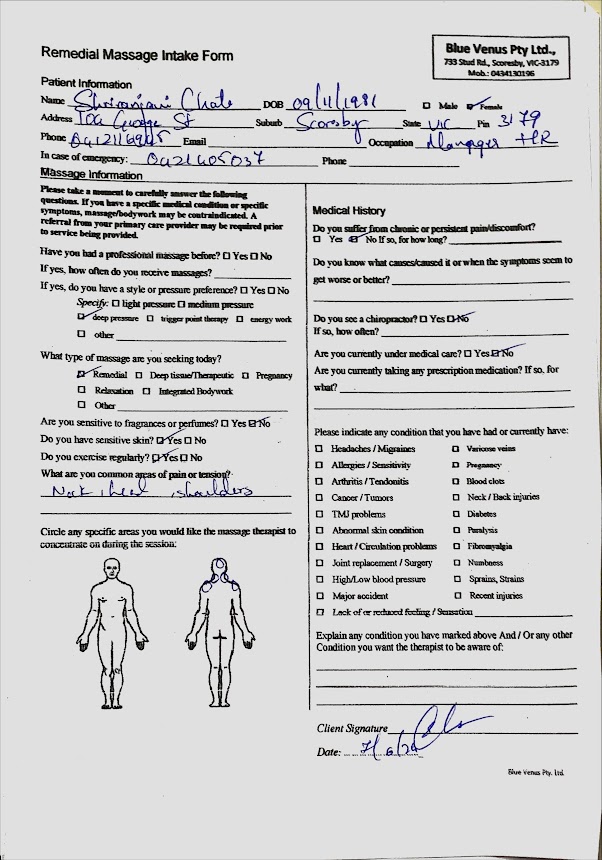 Remedial Massage Intake Form
Blue Venus Pty Ltd.,
733 Stud Rd., Scoresby, VIC-3179
Mob.: 0434130196
Patient Information
Name Shriranjani Chate DOB 09/11/1981 ☐ Male ☑ Female
Address George St Suburb Scoresby State VIC Pin 3179
Phone Email Occupation Manager HR
In case of emergency: 0421405037 Phone
Massage Information
Please take a moment to carefully answer the following
questions. If you have a specific medical condition or specific
symptoms, massage/bodywork may be contraindicated. A
referral from your primary care provider may be required prior
to service being provided.
Have you had a professional massage before? ☐ Yes ☐ No
If yes, how often do you receive massages?
If yes, do you have a style or pressure preference? ☐ Yes ☐ No
Specify: ☐ light pressure ☐ medium pressure
☑ deep pressure ☐ trigger point therapy ☐ energy work
☐ other
What type of massage are you seeking today?
☑ Remedial ☐ Deep tissue/Therapeutic ☐ Pregnancy
☐ Relaxation ☐ Integrated Bodywork
☐ Other
Are you sensitive to fragrances or perfumes? ☐ Yes ☑ No
Do you have sensitive skin? ☑ Yes ☐ No
Do you exercise regularly? ☑ Yes ☐ No
What are you common areas of pain or tension?
Neck, head, shoulders
Circle any specific areas you would like the massage therapist to
concentrate on during the session:
Medical History
Do you suffer from chronic or persistent pain/discomfort?
☐ Yes ☑ No If so, for how long?
Do you know what causes/caused it or when the symptoms seem to
get worse or better?
Do you see a chiropractor? ☐ Yes ☑ No
If so, how often?
Are you currently under medical care? ☐ Yes ☑ No
Are you currently taking any prescription medication? If so. for
what?
Please indicate any condition that you have had or currently have:
☐ Headaches / Migraines ☐ Varicose veins
☐ Allergies / Sensitivity ☐ Pregnancy
☐ Arthritis / Tendonitis ☐ Blood clots
☐ Cancer / Tumors ☐ Neck / Back injuries
☐ TMJ problems ☐ Diabetes
☐ Abnormal skin condition ☐ Paralysis
☐ Heart / Circulation problems ☐ Fibromyalgia
☐ Joint replacement / Surgery ☐ Numbness
☐ High/Low blood pressure ☐ Sprains, Strains
☐ Major accident ☐ Recent injuries
☐ Lack of or reduced feeling / Sensation
Explain any condition you have marked above And / Or any other
Condition you want the therapist to be aware of:
Client Signature
Date:
Blue Venus Pty. Ltd